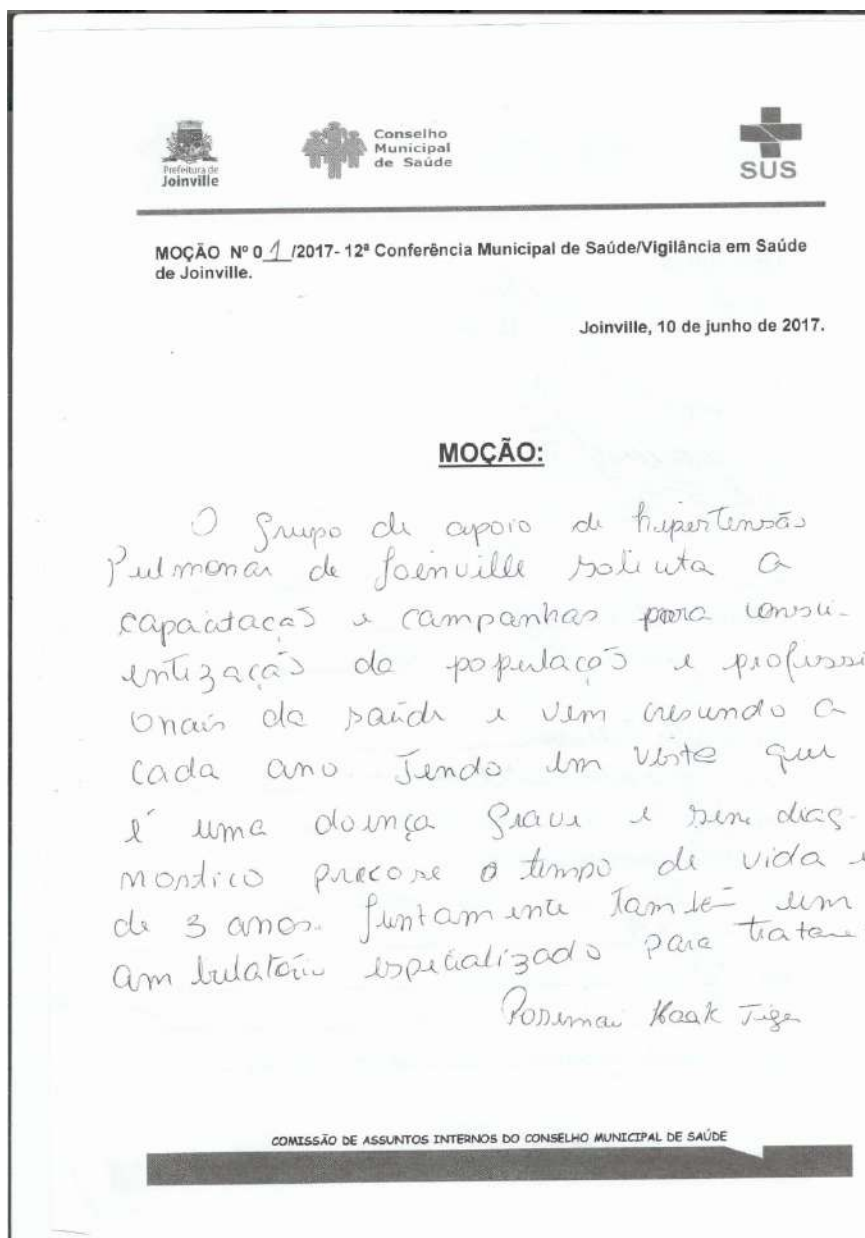 Prefeitura de
Joinville
Conselho
Municipal
de Saúde
SUS
MOÇÃO Nº 01/2017- 12ª Conferência Municipal de Saúde/Vigilância em Saúde
de Joinville.
Joinville, 10 de junho de 2017.
MOÇÃO:
O Grupo de apoio de hipertensão
Pulmonar de Joinville solicita a
capacitação e campanhas para consci-
entização da população e profissi
onais da saúde e vem crescendo a
cada ano Tendo em vista que
é uma doença grave e sem diag-
nostico precose o tempo de vida e
de 3 anos. Juntamente também um
ambulatório especializado para
Haak
COMISSÃO DE ASSUNTOS INTERNOS DO CONSELHO MUNICIPAL DE SAÚDE